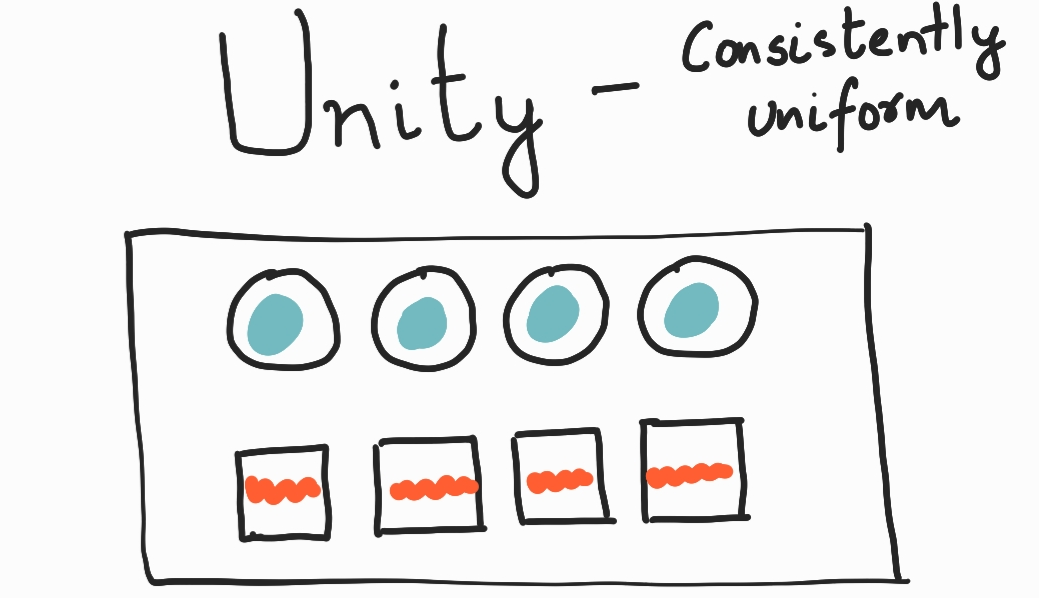 Unity - Consistently
uniform